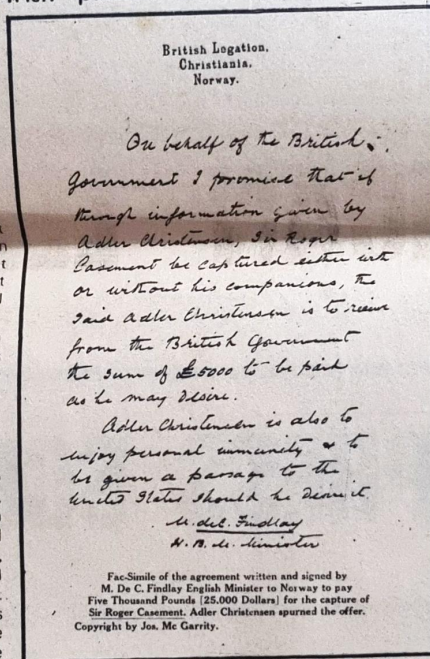 British Legation,
Christiania,
Norway.
On behalf of the British
Government I promise that if
through information given by
Adler Christensen, Sir Roger
Casement be captured either with
or without his companions, the
said Adler Christensen is to receive
from the British Government
the sum of £5000 to be paid
as he may desire.
Adler Christensen is also to
enjoy personal immunity & to
be given a passage to the
United States should he desire it.
M. de C. Findlay
H. B. M. Minister
Fac-Simile of the agreement written and signed by
M. De C. Findlay English Minister to Norway to pay
Five Thousand Pounds [25.000 Dollars] for the capture of
Sir Roger Casement. Adler Christensen spurned the offer.
Copyright by Jos. Mc Garrity.